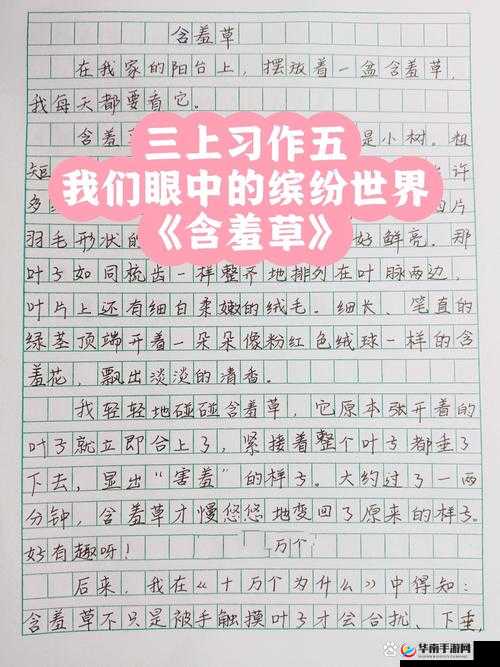 含羞草
在我家的阳台上，摆放着一盆含羞草，
我每天都要看它。
含羞
是小树。粗
短
许
三上习作五
我们眼中的缤纷世界
《含羞草》
多
片
羽毛形状的
好鲜亮。那
叶子如同梳齿一样整齐地排列在叶脉两边，
叶片上还有细白柔嫩的绒毛。细长、笔直的
绿茎顶端开着一朵朵像粉红色绒球一样的含
羞花，飘出淡淡的清香。
我轻轻地碰碰含羞草，它原本张开着的
叶子就立即合上了，紧接着整个叶子都垂了
下去，显出“害羞”的样子。大约过了一两
分钟，含羞草才慢悠悠地变回了原来的样子。
好有趣呀！
万个
后来，我在《十万个为什么》中得知：
含羞草不只是被手触摸叶子才会合拢、下垂，
华南手游网